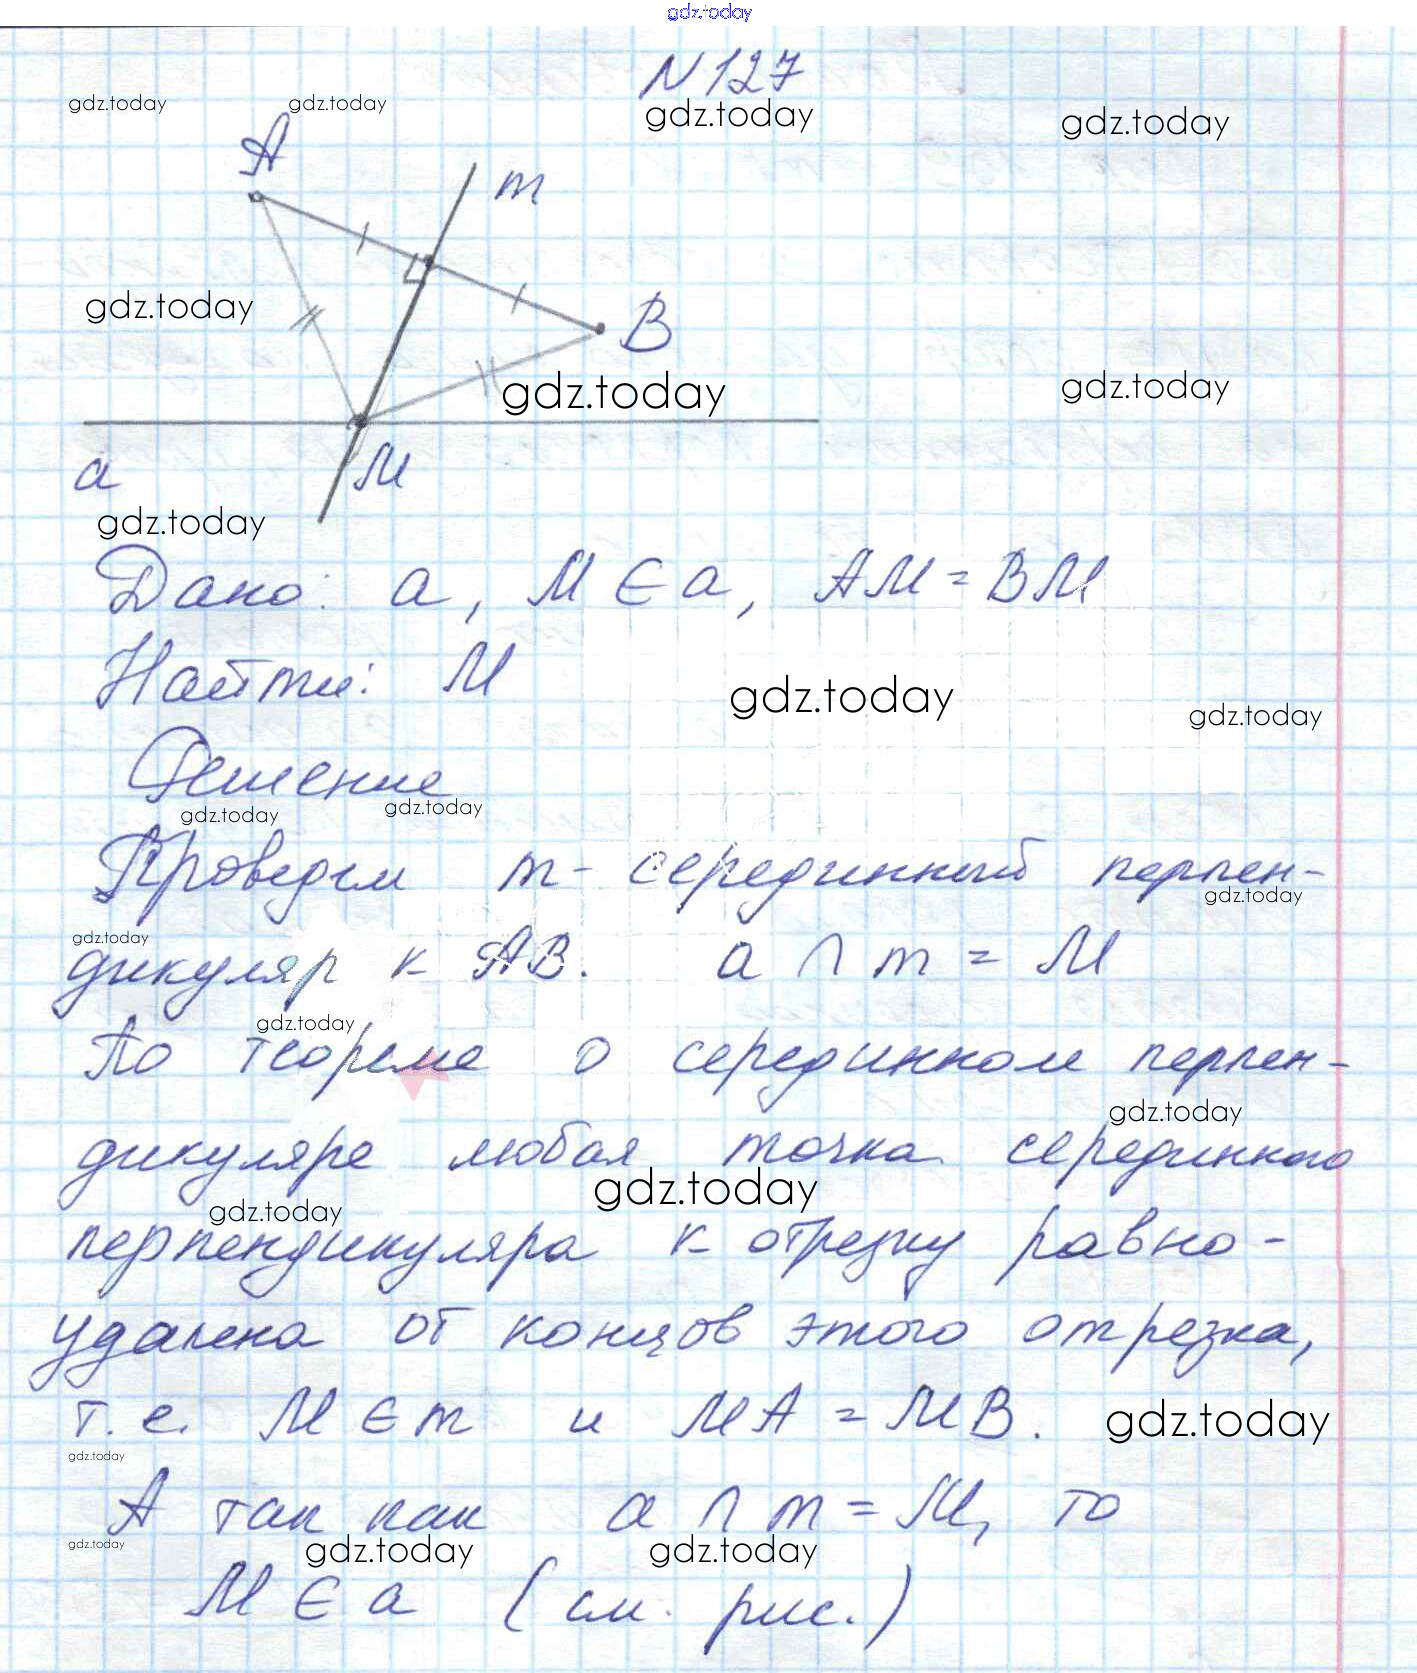 gdz.today
N 127
gdz.today gdz.today gdz.today gdz.today
A
m
gdz.today
B
gdz.today gdz.today
a M
gdz.today
Дано: a, M ∈ a, AM = BM
Найти: M
gdz.today gdz.today
Решение
gdz.today gdz.today
Проведем m - серединный перпен-
gdz.today
gdz.today
дикуляр к AB. a ∩ m = M
gdz.today
По теореме о серединном перпен-
gdz.today
дикуляре любая точка серединного
gdz.today gdz.today
перпендикуляра к отрезку равно-
удалена от концов этого отрезка,
т.е. M ∈ m и MA = MB. gdz.today
gdz.today
А так как a ∩ m = M, то
gdz.today gdz.today gdz.today
M ∈ a (см. рис.)